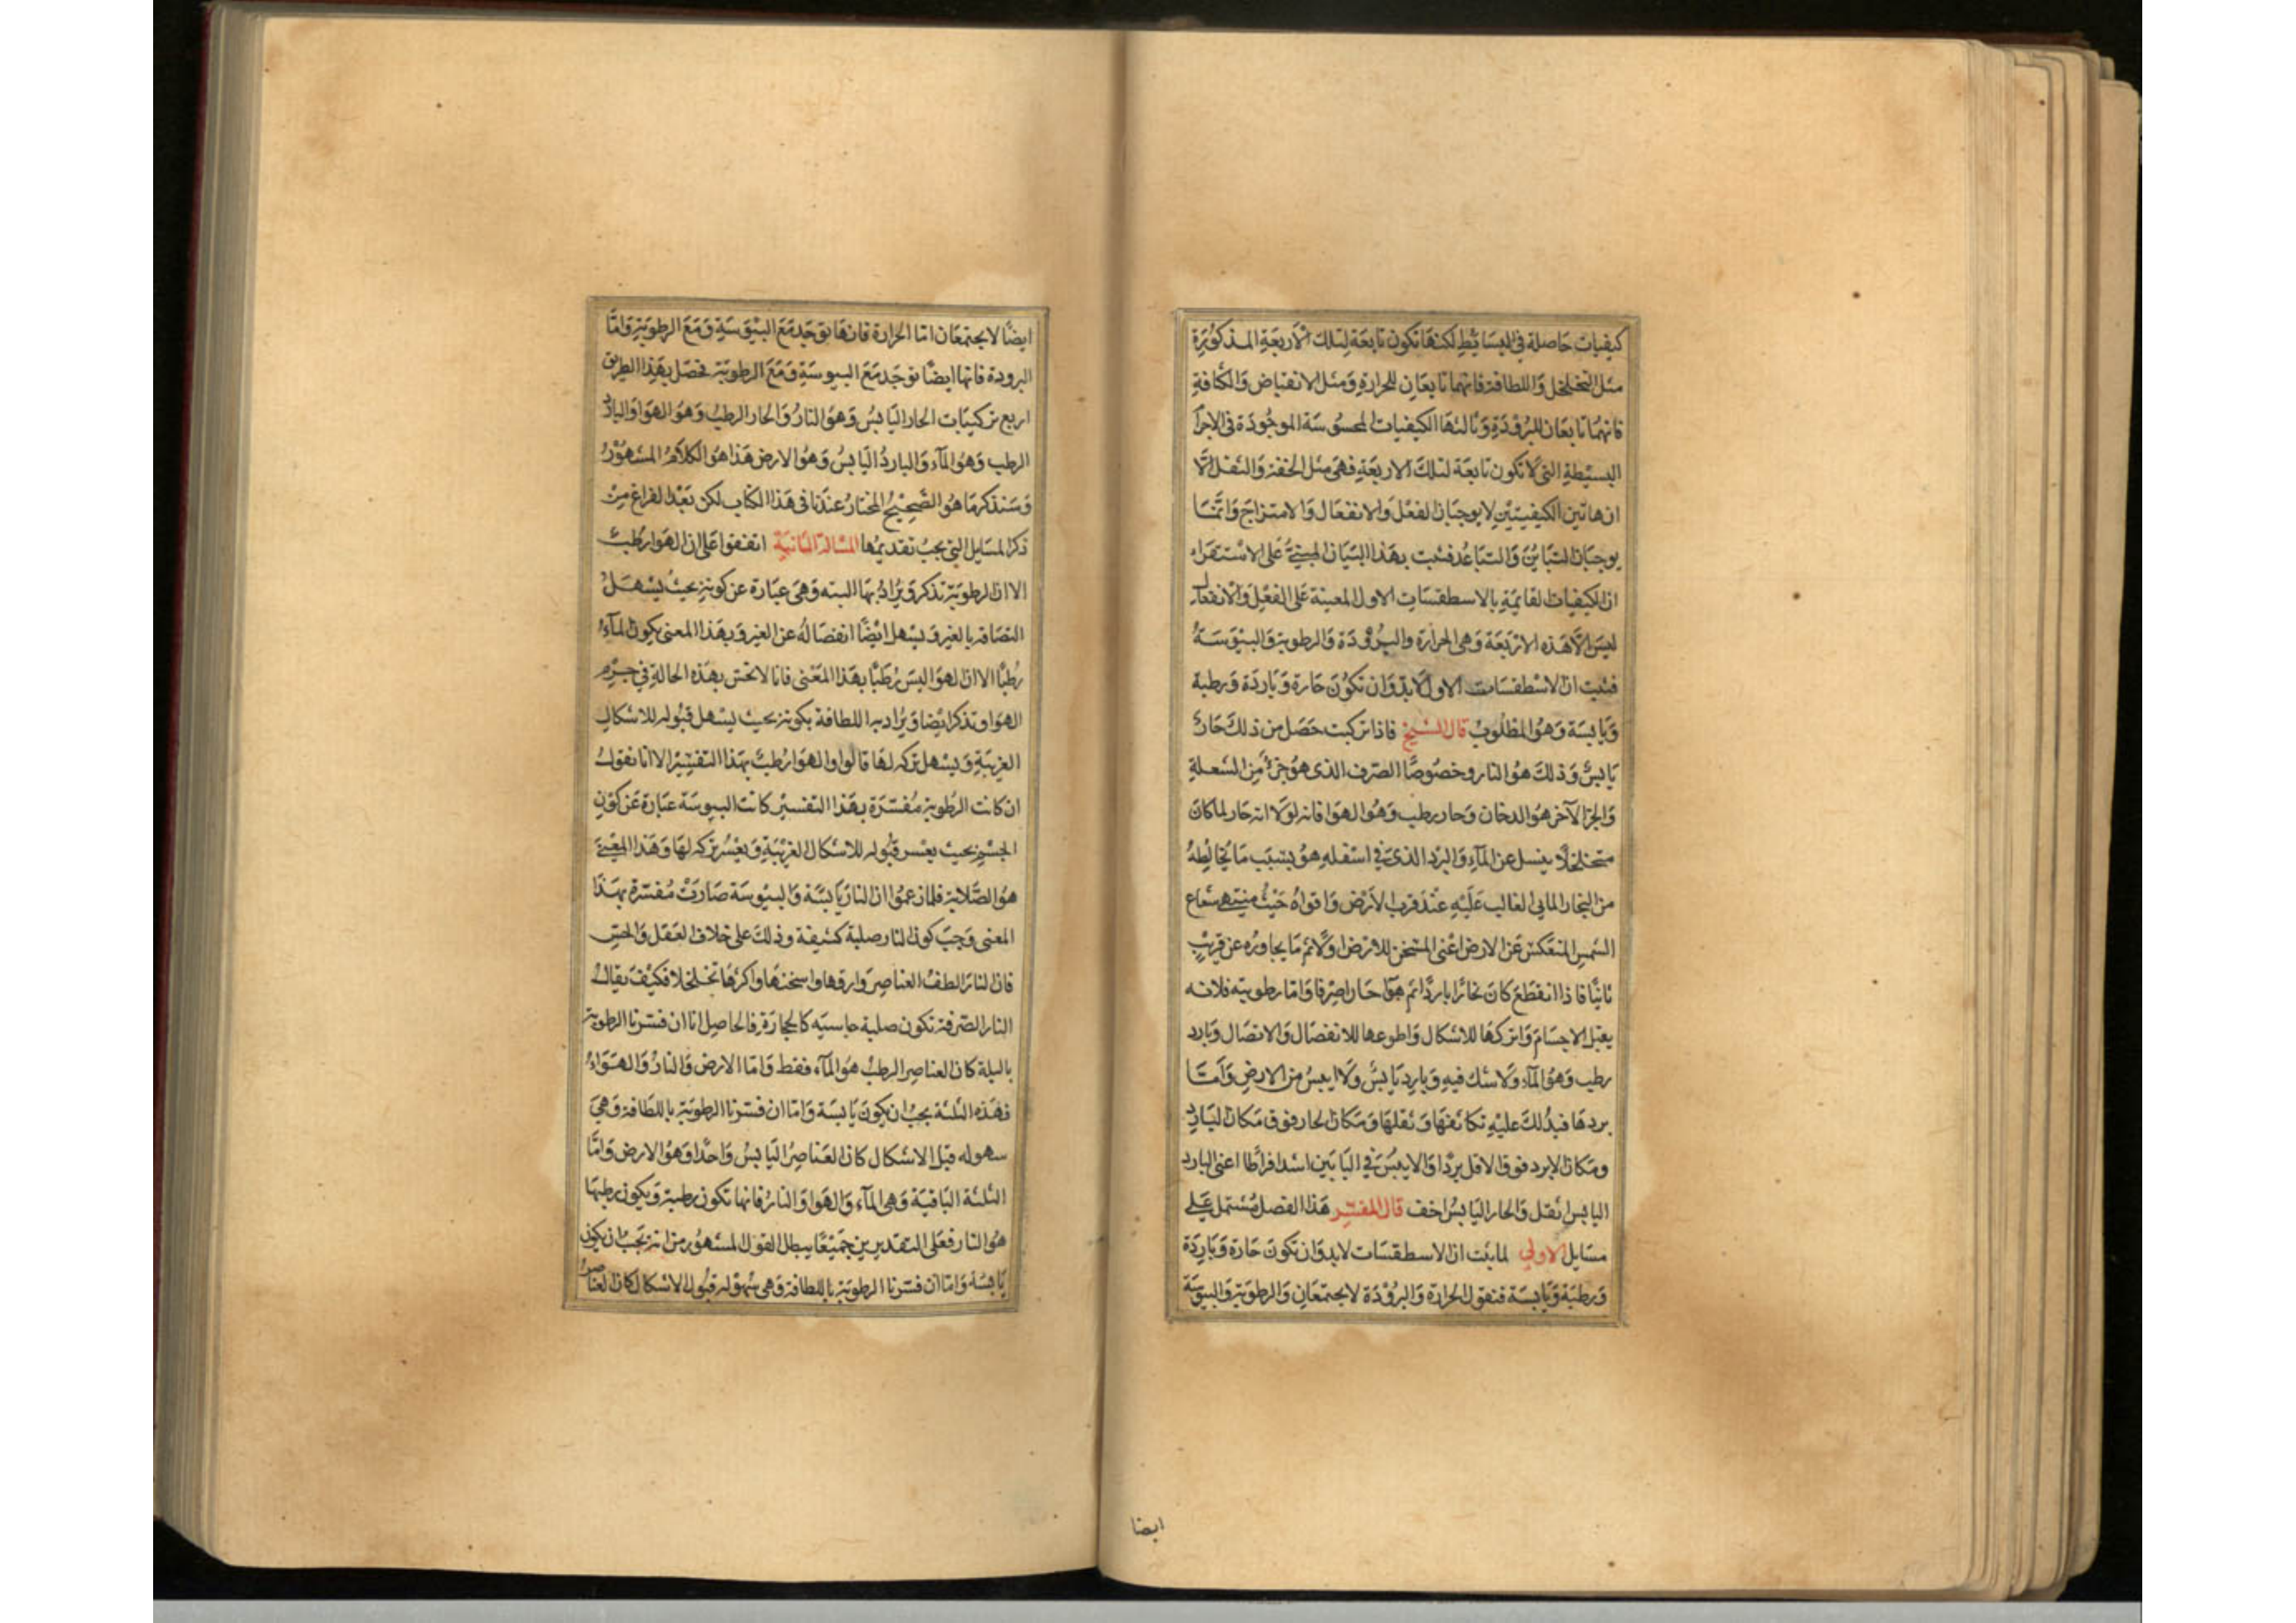 كيفيات حاصلة في البسائط لكنها تكون تابعة لتلك الأربعة المذكورة
مثل التخلخل واللطافة فانهما تابعان للحرارة ومثل الانقباض والكثافة
فانهما تابعان للبرودة وثالثها الكيفيات المحسوسة الموجودة في الاجرآ
البسيطة التي لا تكون تابعة لتلك الاربعة فهي مثل الخفة والثقل الّا
ان هاتين الكيفيتين لا يوجبان الفعل والانفعال والامتزاج وانما
يوجبان التباين والتباعد فثبت بهذا البيان المبني على الاستقراء
ان الكيفيات القائمة بالاسطقسات الاول المعينة على الفعل والانفعال
ليس الّا هذه الاربعة وهي الحرارة والبرودة والرطوبة واليبوسة
فثبت ان الاسطقسات الاول لا بد وان تكون حارة وباردة ورطبة
ويابسة وهو المطلوب قال الشيخ فاذا تركبت حصل من ذلك حار
يابس وذلك هو النار وخصوصًا الصرف الذي هو جزء من الشعلة
والجزا الآخر هو الدخان وحار رطب وهو الهوا فانه لولا انه حار لما كان
متخلخلًا ينسل عن المآء والبرد الذي في اسفله هو بسبب ما يخالطه
من البخار المايي الغالب عليه عند قرب الارض واقواه حيث ينتهي شعاع
الشمس المنعكس عن الارض اعني المسخن للارض اولا ثم ما يجاوره عن قريب
ثانيًا فاذا انقطع كان بخارا باردًا ثم هوآ حارا صرفا واما رطوبته فلانه
يقبل الاجسام واتركها للاشكال واطوعها للانفصال والاتصال وبارد
رطب وهو المآء ولا شك فيه وبارد يابس ولا ايبس من الارض وأما
بردها فيدلك عليه تكاثفها وثقلها ومكان الحار فوق مكان البارد
ومكان الابرد فوق الاقل بردا والايبس في اليابسين اشد افراطا اعني البارد
اليابس اثقل والحار اليابس اخف قال المفسر هذا الفصل مشتمل على
مسايل الاولي لما ثبت ان الاسطقسات لابد وان تكون حارة وباردة
ورطبة ويابسة فنقول الحرارة والبرودة لا يجتمعان والرطوبة واليبوسة
ايضا
ايضًا لا يجتمعان اما الحرارة فانها توجد مع اليبوسة ومع الرطوبة واما
البرودة فانها ايضًا توجد مع اليبوسة ومع الرطوبة فحصل بهذا الطريق
اربع تركيبات الحار اليابس وهو النار والحار الرطب وهو الهوا والبارد
الرطب وهو المآء والبارد اليابس وهو الارض هذا هو الكلام المشهور
وسنذكر ما هو الصحيح المختار عندنا في هذا الكتاب لكن بعد الفراغ من
ذكر المسايل التي يجب تقديمها المسالة الثانية اتفقوا على ان الهوا رطب
الا ان الرطوبة تذكر ويراد بها البته وهي عبارة عن كونه بحيث يسهل
التصاقه بالغير ويسهل ايضًا انفصاله عن الغير وبهذا المعنى يكون المآء
رطبًا الا ان الهوا ليس رطبًا بهذا المعنى فانا لا نحس بهذه الحالة في جرم
الهوا وتذكر ايضا ويراد بها اللطافة بكونه بحيث يسهل قبوله للاشكال
الغريبة ويسهل تركه لها قالوا والهوا رطب بهذا التفسير الا انا نقول
ان كانت الرطوبة مفسرة بهذا التفسير كانت اليبوسة عبارة عن كون
الجسم بحيث يعسر قبوله للاشكال الغريبة ويعسر تركه لها وهذا المعنى
هو الصلابة فلما زعموا ان النار يابسة واليبوسة صارت مفسرة بهذا
المعنى وجب كون النار صلبة كثيفة وذلك على خلاف العقل والحس
فان النار الطف العناصر وارقها واسخنها واكثرها تخلخلا فكيف يقال
النار الصرفة تكون صلبة جاسيه كالحجارة فالحاصل انا ان فسرنا الرطوبة
بالبلة كان العناصر الرطب هو المآء فقط واما الارض والنار والهواء
فهذه الثلثة يجب ان يكون يابسة واما ان فسرنا الرطوبة باللطافة وهي
سهوله قبل الاشكال كان العناصر اليابس واحدًا وهو الارض واما
الثلثة الباقية وهي المآء والهوا والنار فانها تكون رطبة ويكون رطبها
هو النار فعلى التقديرين جميعًا يبطل القول المشهور من انه يجب ان يكون
يابسة واما ان فسرنا الرطوبة باللطافة وهي سهولة قبول الاشكال كان العناصر